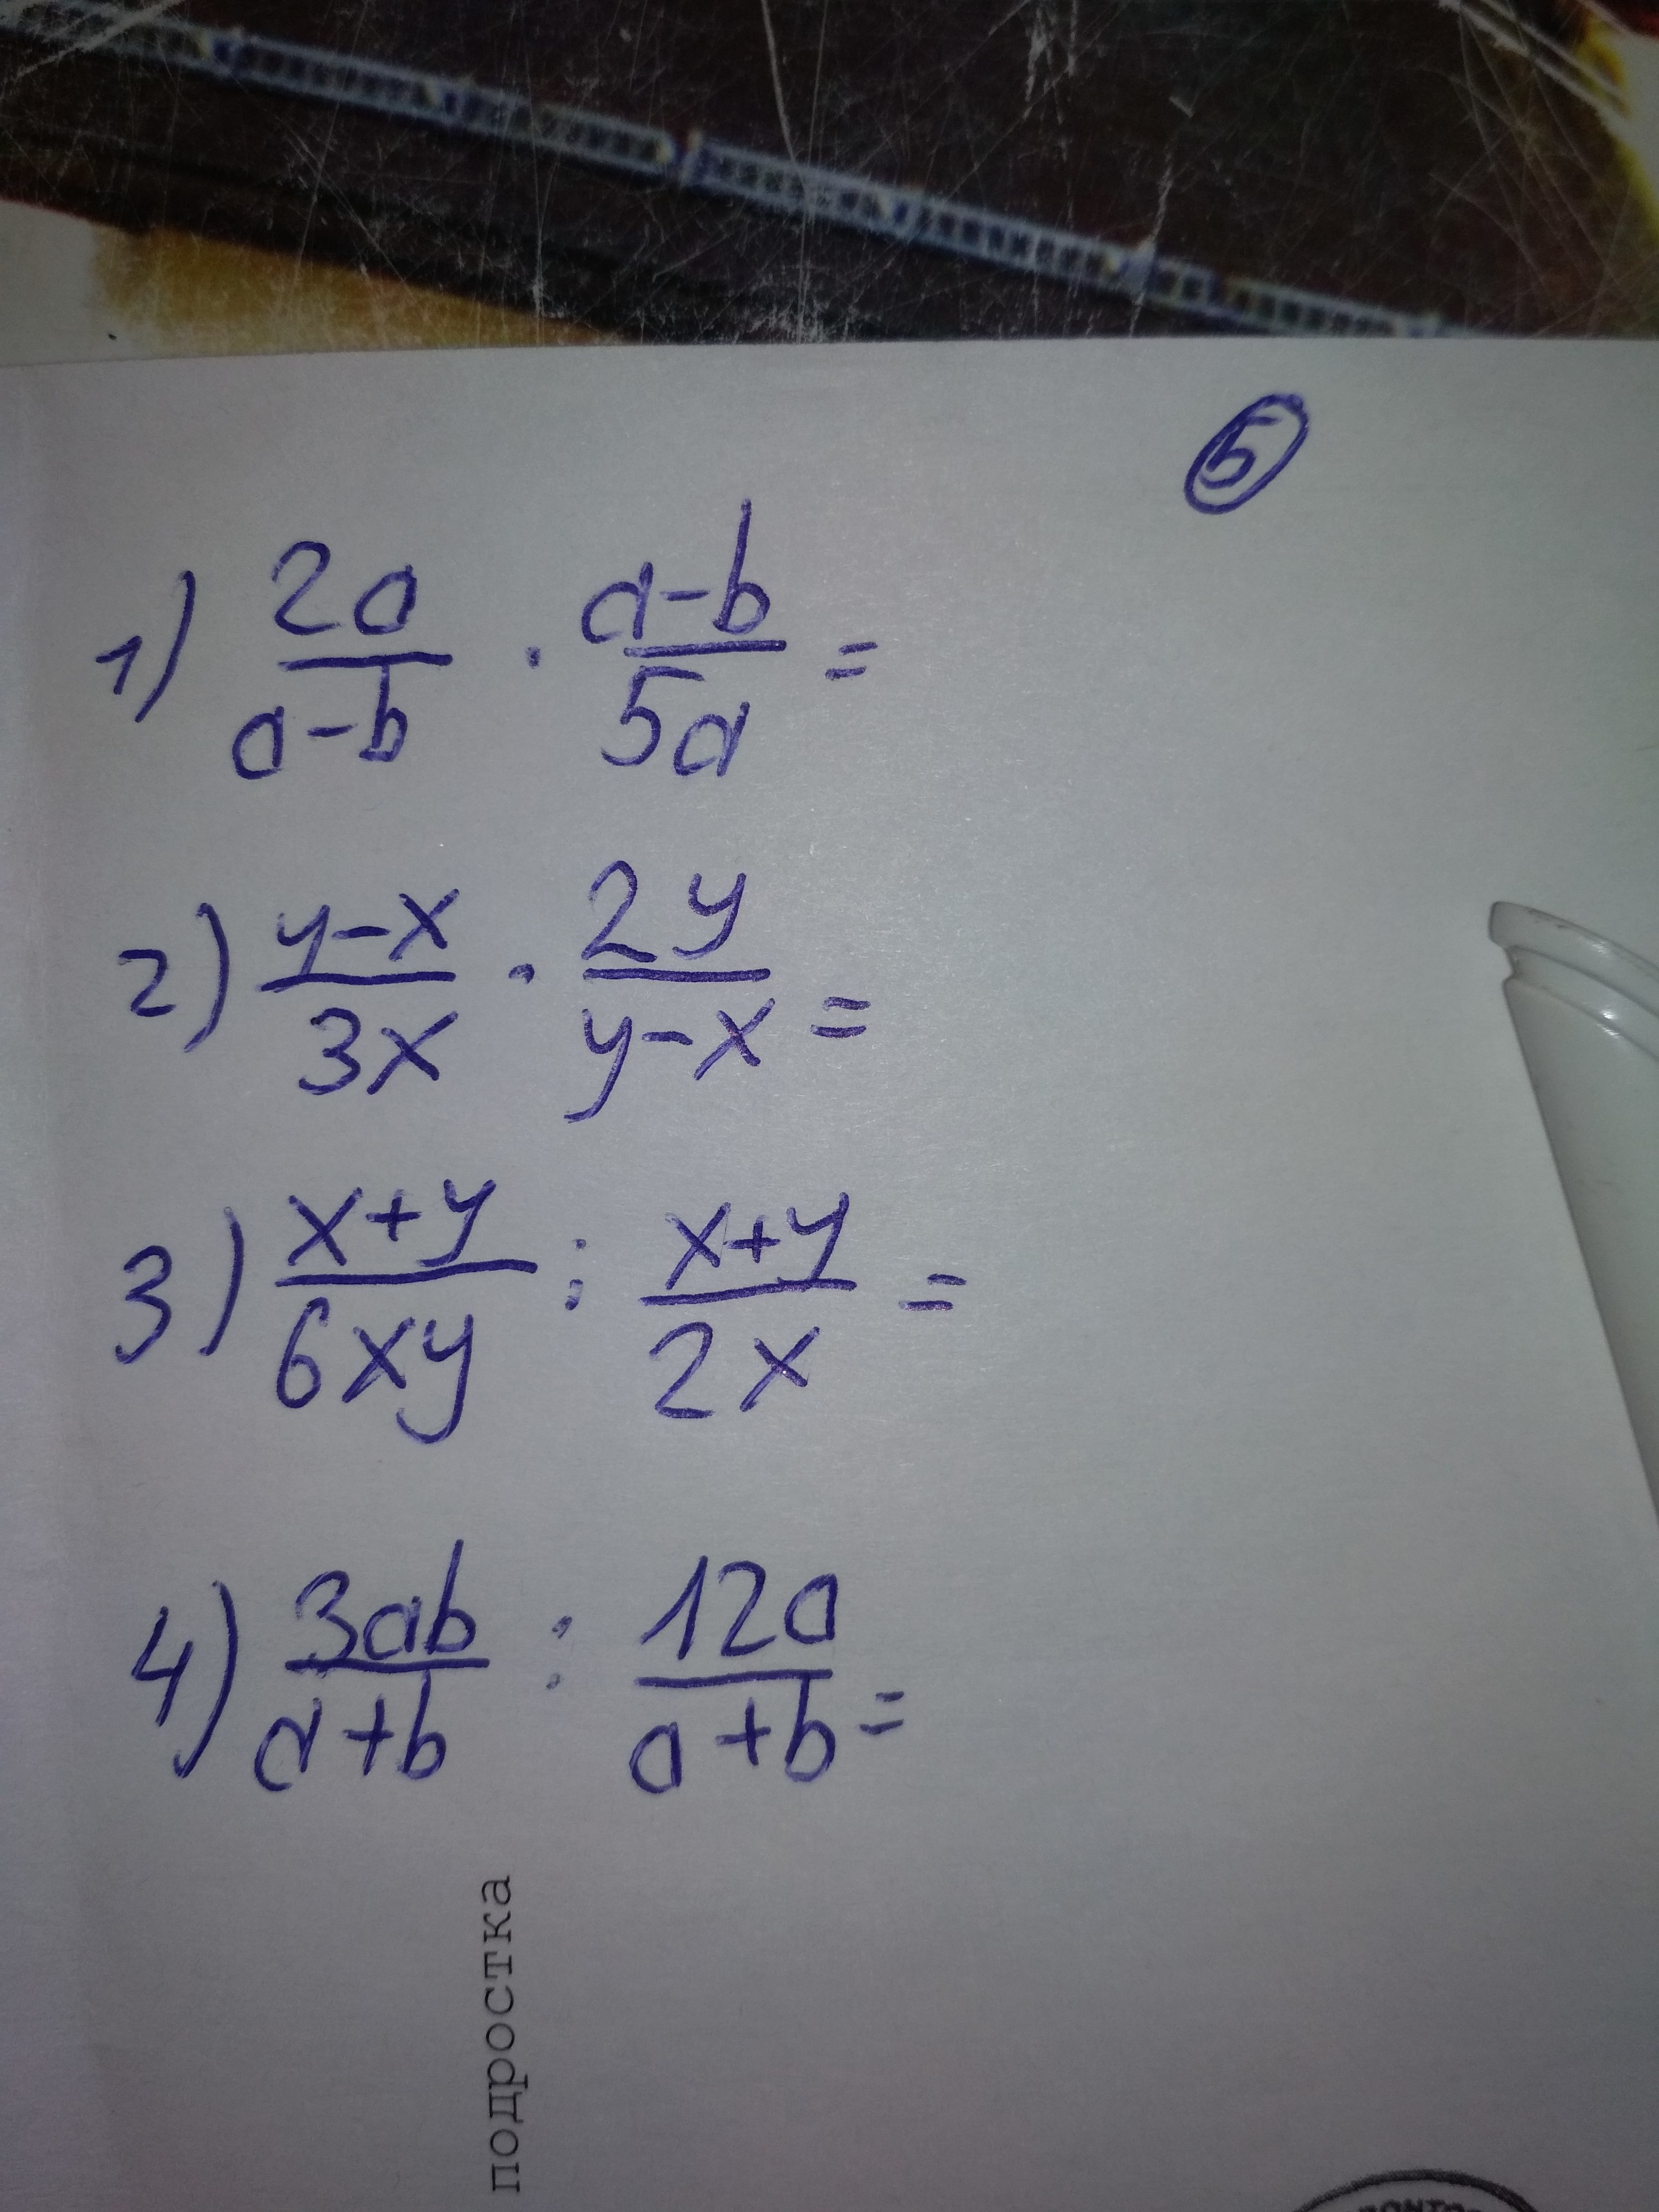 5
1) 2a/a-b · a-b/5a =
2) y-x/3x · 2y/y-x =
3) x+y/6xy : x+y/2x =
4) 3ab/a+b : 12a/a+b =
подростка